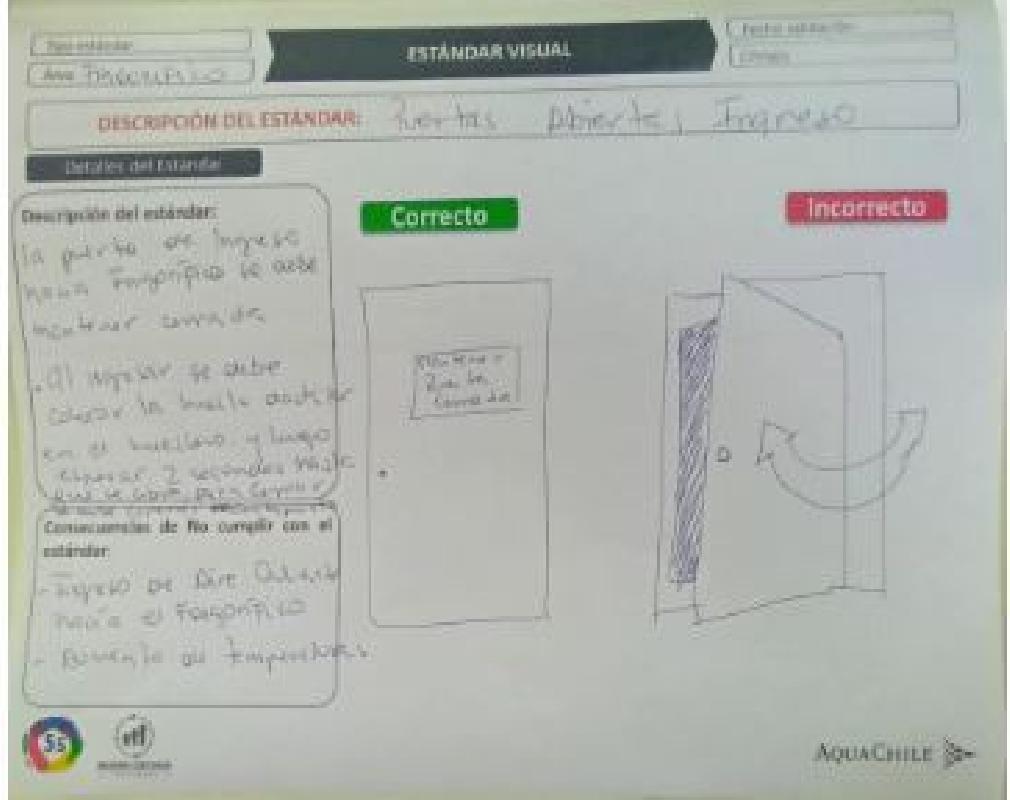 Tipo estándar
ESTÁNDAR VISUAL
Fecha validación:
Código:
Área Frigorífico
DESCRIPCIÓN DEL ESTÁNDAR: Puertas Abiertas Ingreso
Detalles del Estándar
Descripción del estándar:
la puerta de Ingreso
hacia Frigorífico se debe
mantener cerrada
. Al ingresar se debe
colocar la huella dactilar
en el huellero y luego
esperar 2 segundos hasta
que se abra para
Consecuencias de No cumplir con el
estándar
- Ingreso de Aire Caliente
hacia el Frigorífico
- Aumento de temperaturas
Correcto
Mantener
Puerta
Cerrada
Incorrecto
5S
etf
AQUACHILE